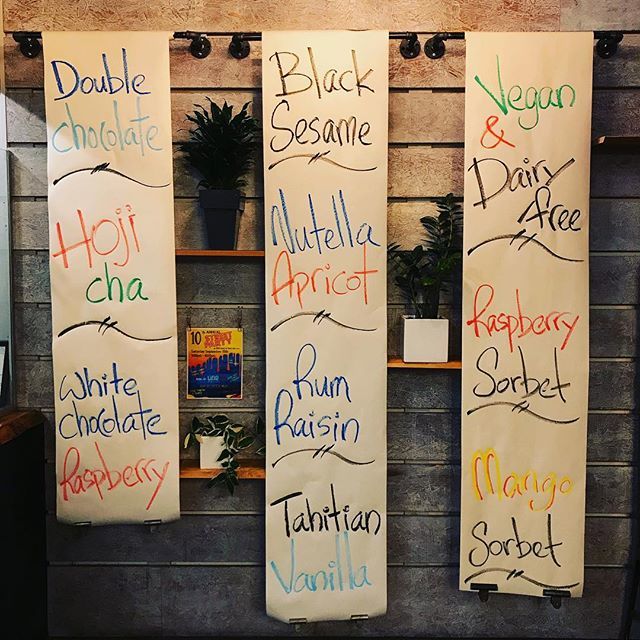 Double
chocolate
Hoji
cha
White
chocolate
Raspberry
Black
Sesame
Nutella
Apricot
Rum
Raisin
Tahitian
Vanilla
Vegan
&
Dairy
free
Raspberry
Sorbet
Mango
Sorbet
10